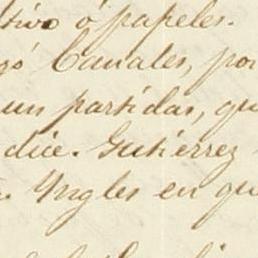 tivo ó papeles.
gó Canales, por
un partidas, qu
dice. Gutierrez
Yngles en qu